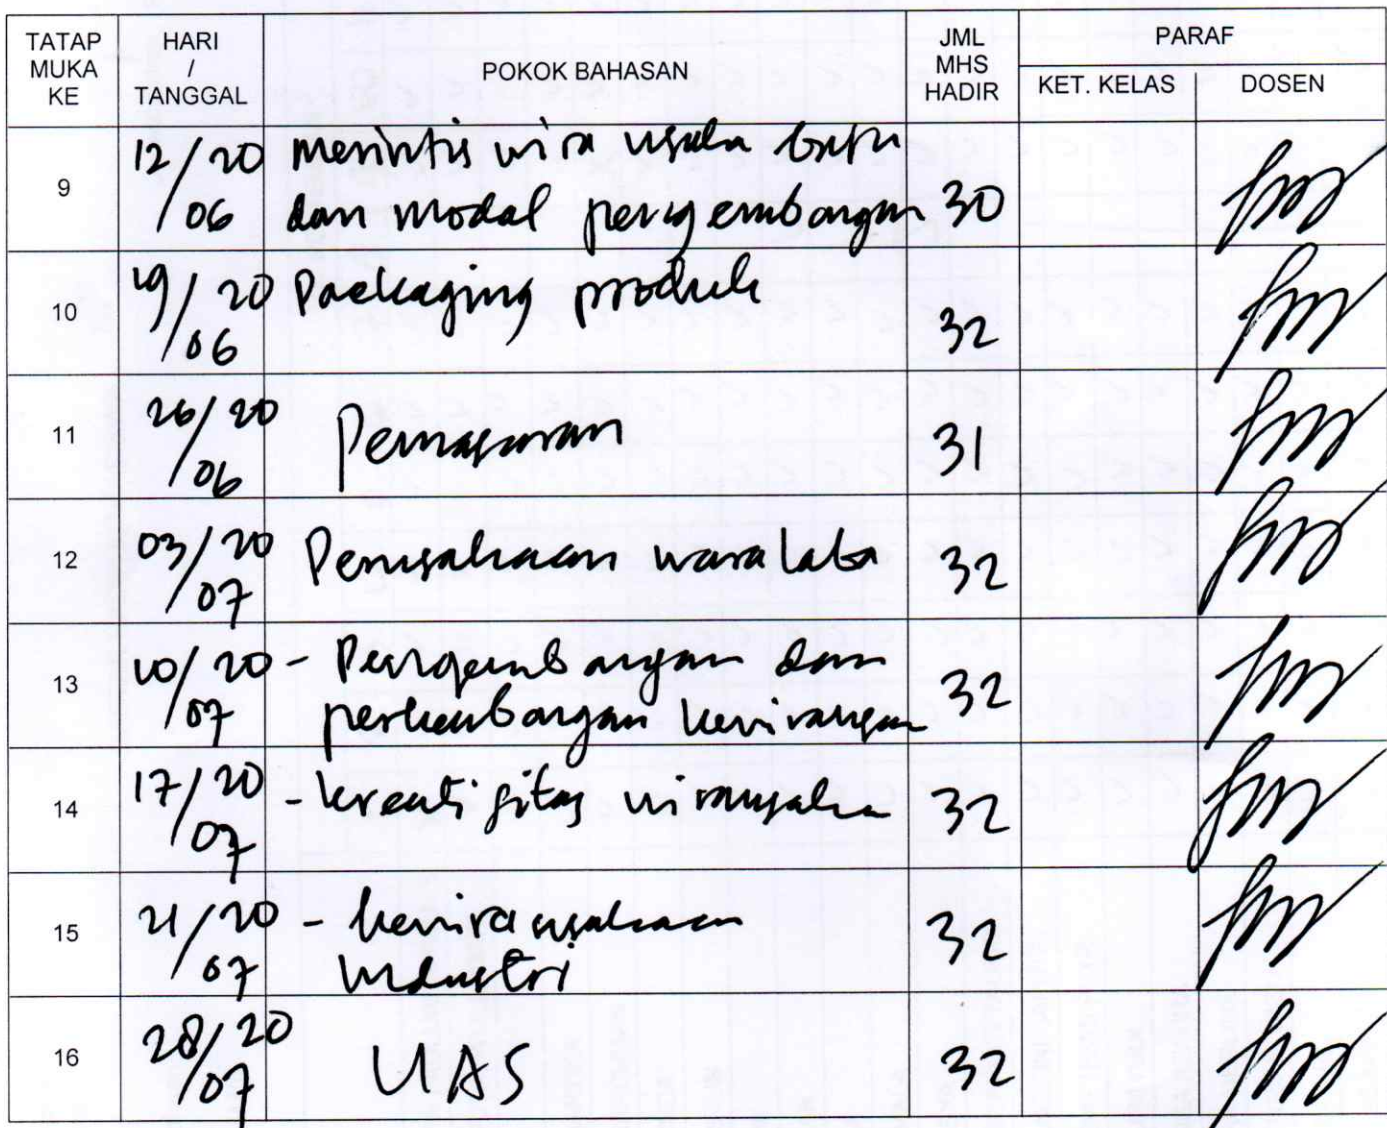 TATAP MUKA KE HARI / TANGGAL POKOK BAHASAN JML MHS HADIR PARAF
KET. KELAS DOSEN
9 12/06 20 merintis wira usaha baru
dan modal pengembangan 30
10 19/06 20 Packaging produk 32
11 26/06 20 Pemasaran 31
12 03/07 20 Perusahaan waralaba 32
13 10/07 20 - Pengembangan dan
perkembangan 32
14 17/07 20 - kreatifitas wirausaha 32
15 21/07 20 - kewirausahaan
industri 32
16 28/07 20 UAS 32